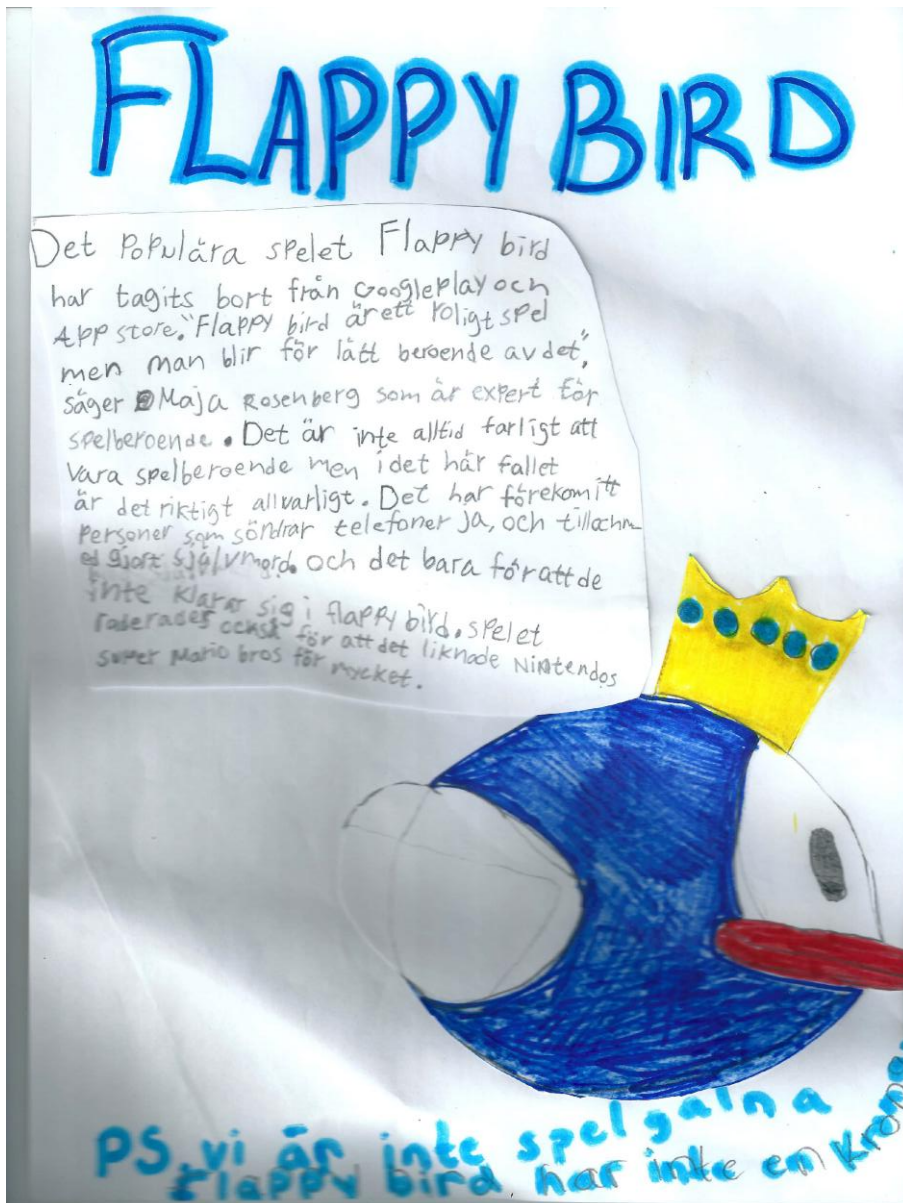 FLAPPY BIRD
Det Populära spelet Flappy bird
har tagits bort från Googleplay och
App store. "Flappy bird är ett roligt spel
men man blir för lätt beroende av det",
säger Maja Rosenberg som är expert för
spelberoende. Det är inte alltid farligt att
vara spelberoende men i det här fallet
är det riktigt allvarligt. Det har förekomitt
personer som söndrar telefoner ja, och tillochm
ed gjort självmord. och det bara för att de
inte klarar sig i flappy bird. spelet
raderades också för att det liknade Nintendos
super Mario bros för mycket.
PS. vi är inte spelgalna
flappy bird har inte en Krona